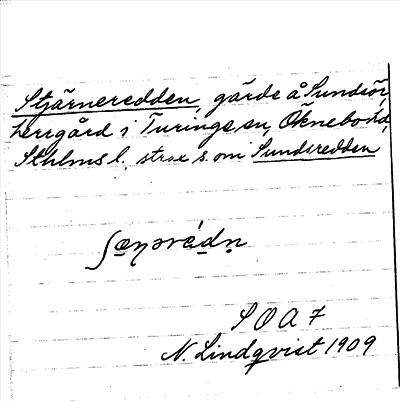 Stjärneredden, gärde å Sundsör,
herrgård i Turinge sn, Öknebo hd,
Sthlms l. strax s. om Sundsredden
SOA 7
N. Lindqvist 1909